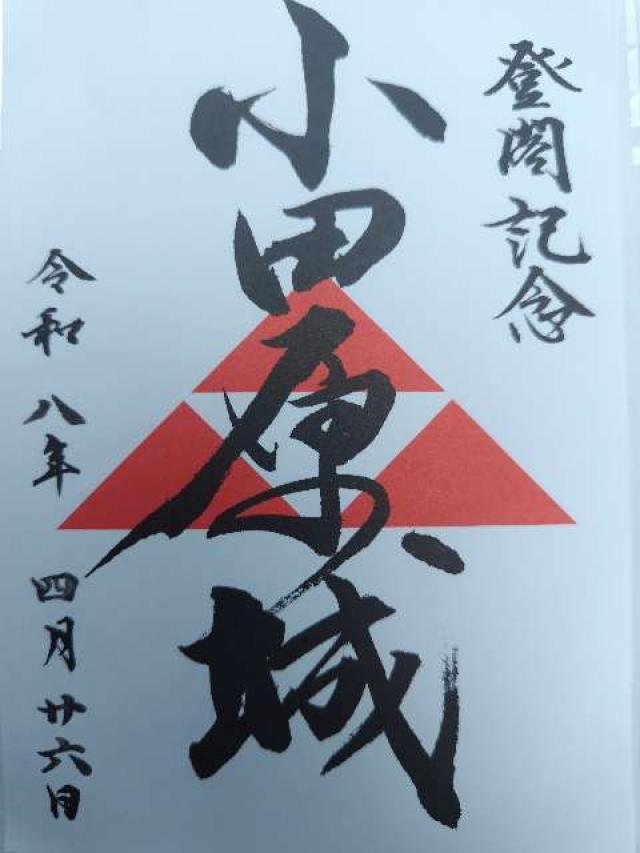 登閣記念
小田原城
令和八年 四月廿六日